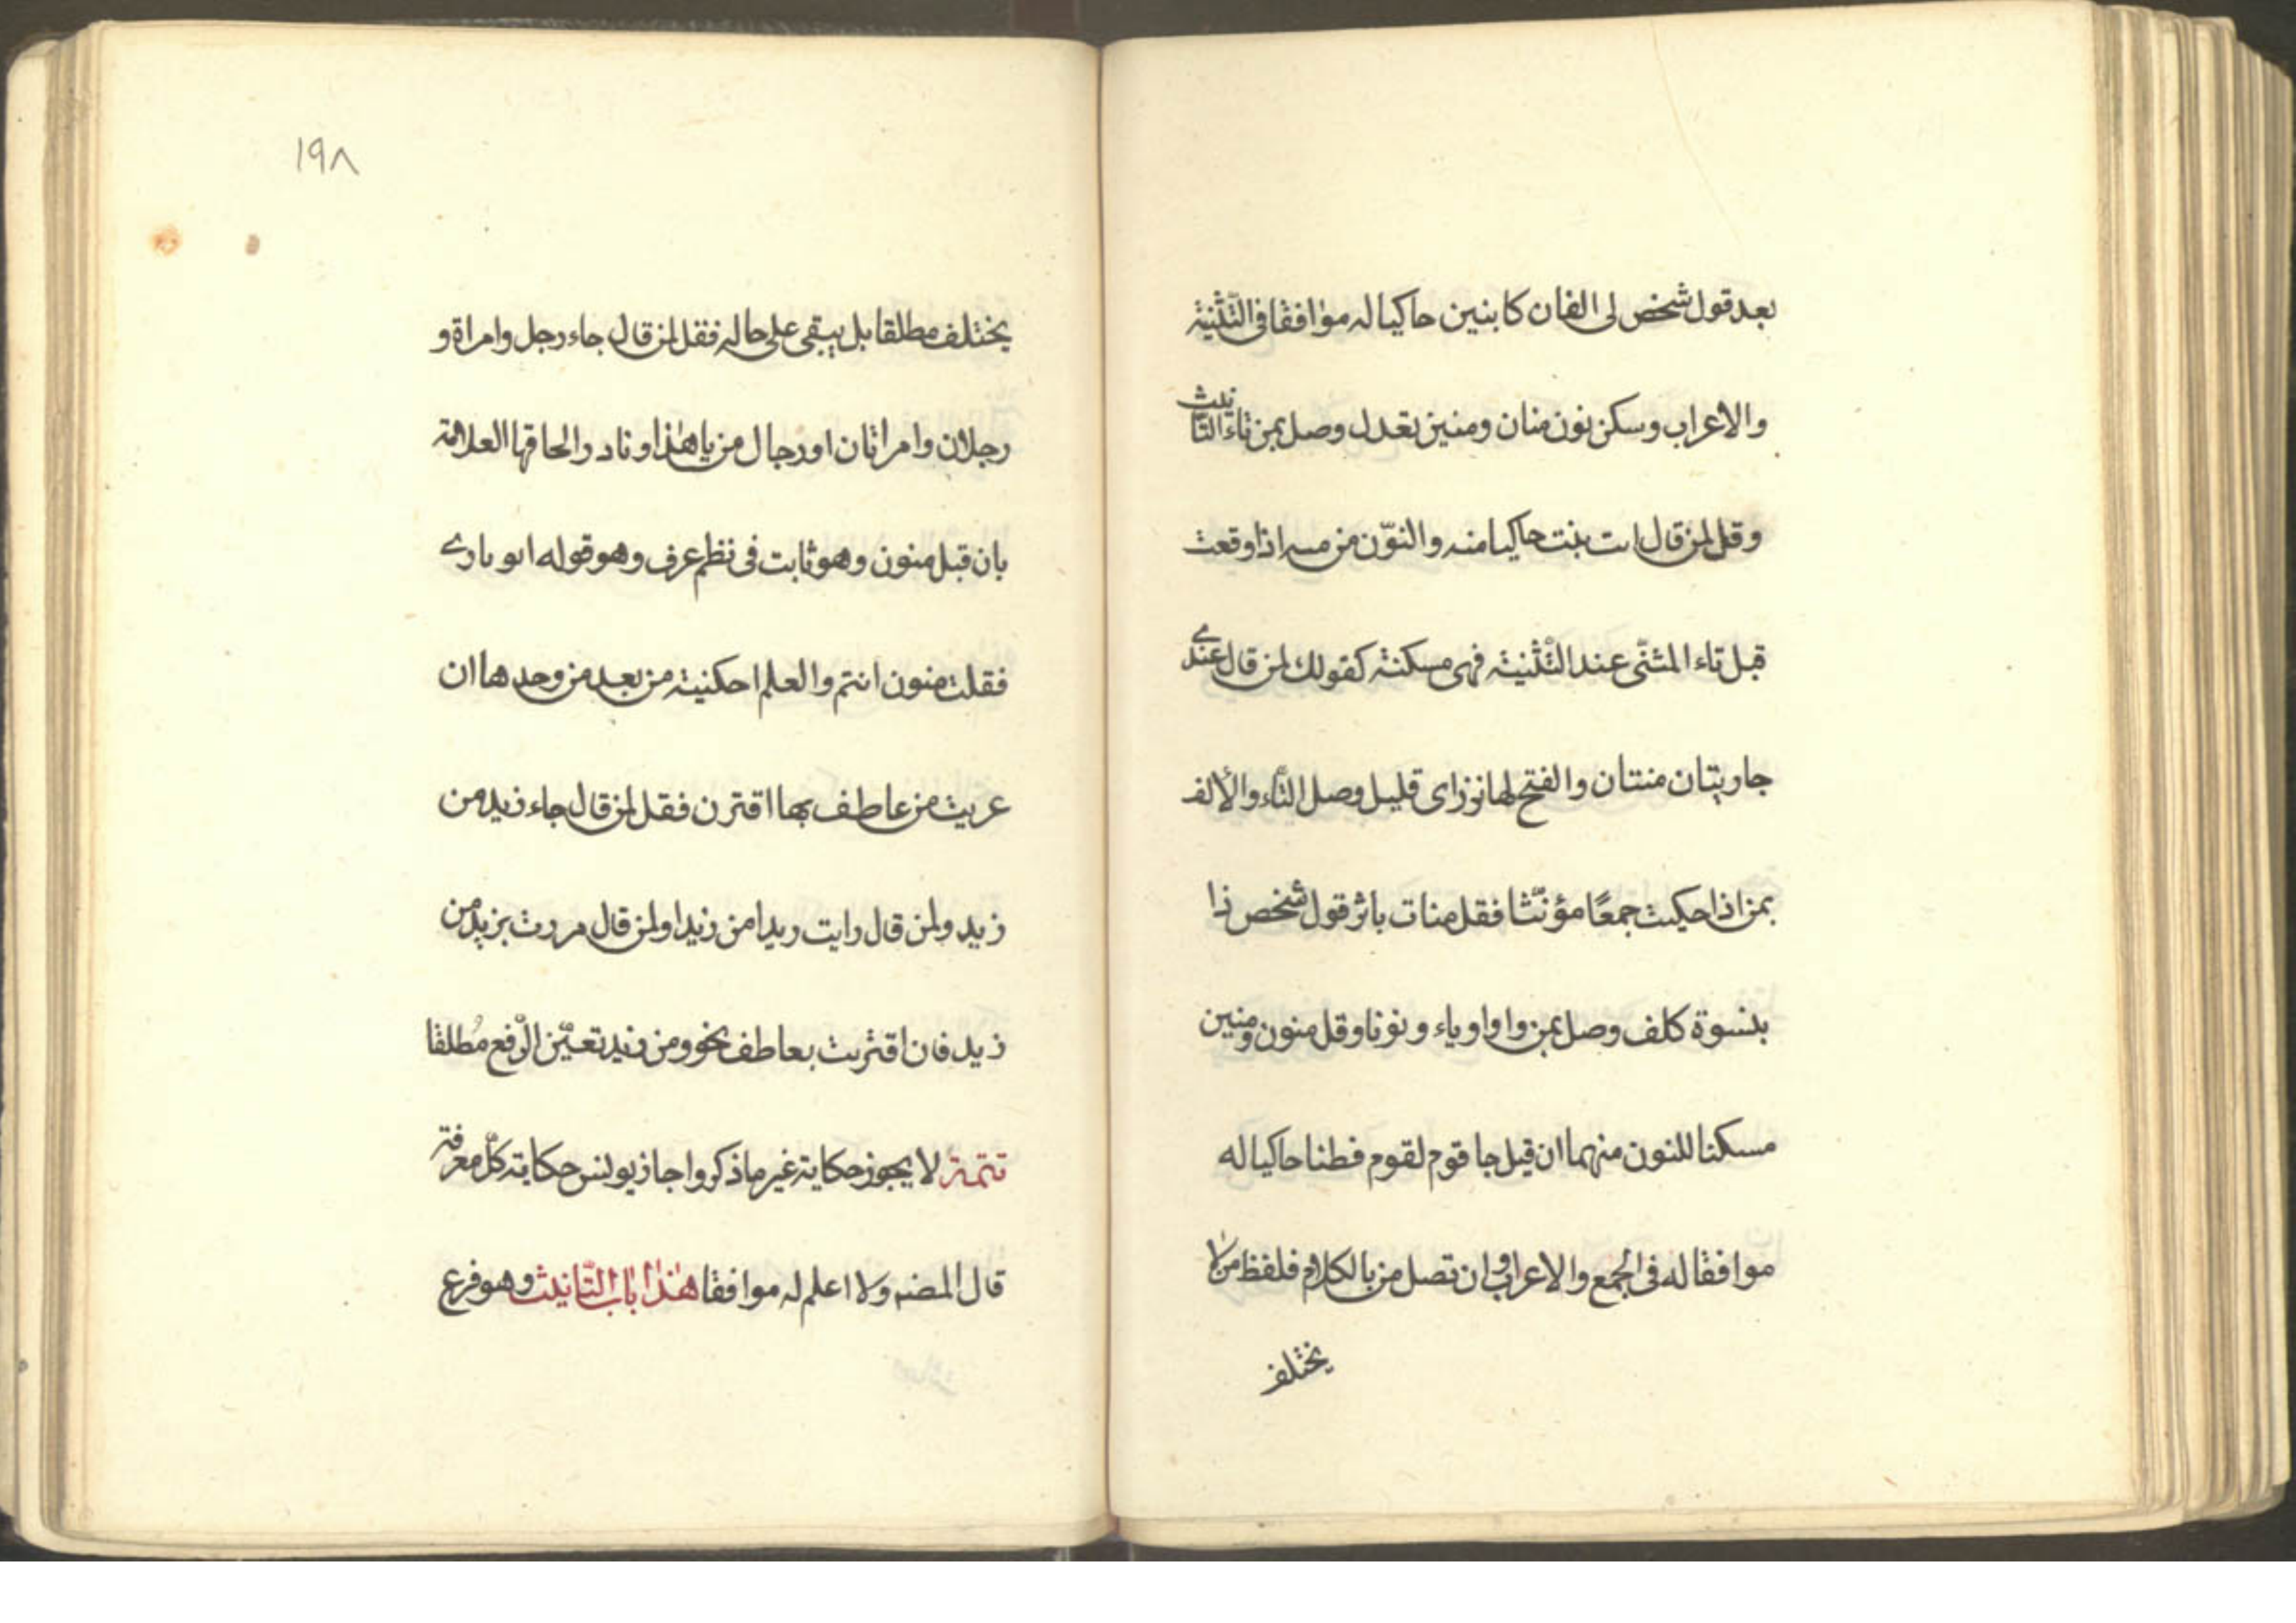 بعد قول شخص لى الفان كابنين حاكيا له موافقا فى التّثنية
والاعراب وسكن نون منان ومنين تعدل وصل بمن تاء التّانيث
وقل لمن قال اتت بنت حاكيا منه والنّون من منه اذا وقعت
قبل تاء المثنّى عند التّثنية فهى مسكنة كقولك لمن قال عندى
جاريتان منتتان والفتح لها نزر اى قليل وصل التّاء والألف
بمن اذا حكيت جمعًا مؤنّثا فقل منات باثر قول شخص ذا
بنسوة كلف وصل بمن واوا وياء ونونا وقل منون ومنين
مسكنا للنون منهما ان قيل جا قوم لقوم فطنا حاكيا له
موافقا له فى الجمع والاعراب وان تصل من بالكلام فلفظ من لا
يختلف
١٩٨
يختلف مطلقا بل يبقى على حاله فقل لمن قال جاء رجل وامراة و
رجلان وامراتان او رجال من يا هٰذا ونادر الحاقها العلامة
بان قبل منون وهو ثابت فى نظم عرف وهو قوله اتو نارى
فقلت منون انتم والعلم احكنيته من بعد من وحدها ان
عريت من عاطف بها اقترن فقل لمن قال جاء زيد من
زيد ولمن قال رايت ريدا من زيدا ولمن قال مررت بزيد من
زيد فان اقترنت بعاطف نحو ومن زيد تعيّن الرّفع مُطلقا
تتمة لا يجوز حكاية غير ما ذكر واجاز يونس حكاية كلّ معرفة
قال المصنه ولا اعلم له موافقا هٰذا باب التّانيث وهو فرع